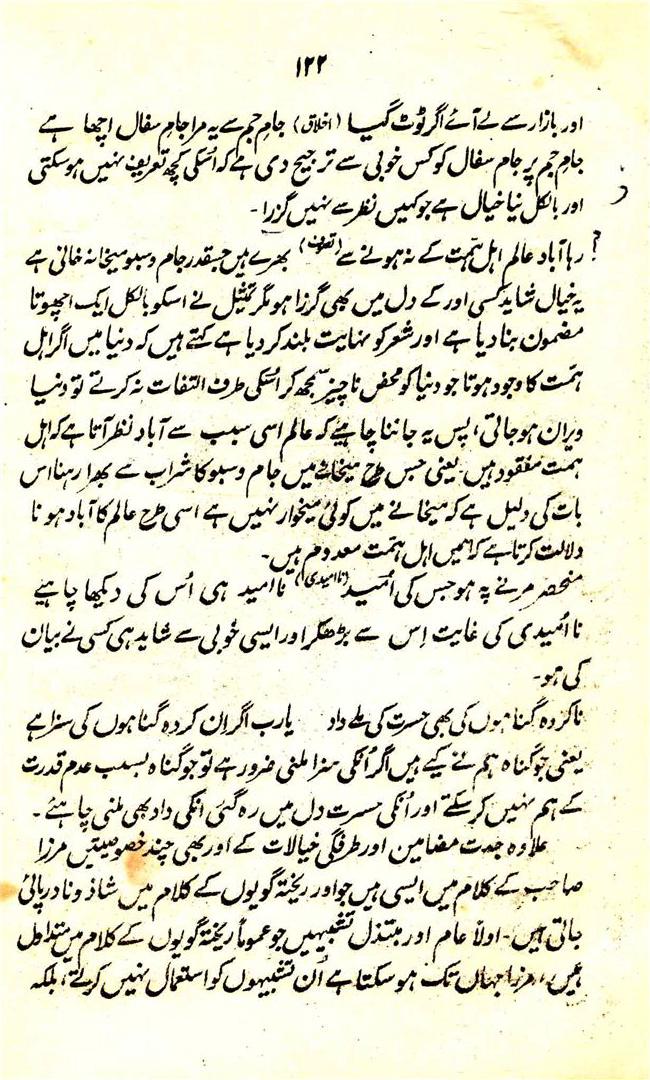 ۱۲۲
اور بازار سے لے آئے اگر ٹوٹ گیا (اخلاق) جامِ جم سے یہ مرا جامِ سفال اچھا ہے
جامِ جم پر جام سفال کو کس خوبی سے ترجیح دی ہے کہ اُسکی کچھ تعریف نہیں ہوسکتی
اور بالکل نیا خیال ہے جو کہیں نظر سے نہیں گزرا۔
رہا آباد عالم اہلِ ہمّت کے نہ ہونے سے (تصوف) بھرے ہیں جسقدر جام و سبو میخانہ خالی ہے
یہ خیال شاید کسی اور کے دل میں بھی گزرا ہو مگر تمثیل نے اسکو بالکل ایک اچھوتا
مضمون بنا دیا ہے اور شعر کو نہایت بلند کر دیا ہے کہتے ہیں کہ دنیا میں اگر اہل
ہمّت کا وجود ہوتا جو دنیا کو محض ناچیز سمجھ کر اُسکی طرف التفات نہ کرتے تو دنیا
ویران ہو جاتی، پس یہ جاننا چاہیئے کہ عالم اسی سبب سے آباد نظر آتا ہے کہ اہل
ہمت مفقود ہیں۔ یعنی جس طرح میخانے میں جام و سبو کا شراب سے بھرا رہنا اس
بات کی دلیل ہے کہ میخانے میں کوئی میخوار نہیں ہے اسی طرح عالم کا آباد ہونا
دلالت کرتا ہے کہ اسمیں اہل ہمّت معدوم ہیں۔
منحصر مرنے پہ ہو جس کی اُمید (ناامیدی) نا امید ہی اُس کی دیکھا چاہیے
نا اُمیدی کی غایت اِس سے بڑھکر اور ایسی خوبی سے شاید ہی کسی نے بیان
کی ہو۔
ناکردہ گناہوں کی بھی حسرت کی ملے داد یارب اگر اِن کردہ گناہوں کی سزا ہے
یعنی جو گناہ ہم نے کیے ہیں اگر اُنکی سزا ملنی ضرور ہے تو جو گناہ بسبب عدم قدرت
کے ہم نہیں کر سکے اور اُنکی حسرت دل میں رہ گئی انکی داد بھی ملنی چاہئے۔
علاوہ جدت مضامین اور طرفگی خیالات کے اور بھی چند خصوصیتیں مرزا
صاحب کے کلام میں ایسی ہیں جو اور ریختہ گویوں کے کلام میں شاذ و نادر پائی
جاتی ہیں۔ اولًا عام اور مبتذل تشبیہیں جو عموماً ریختہ گویوں کے کلام میں متداول
ہیں، مرزا جہاں تک ہو سکتا ہے اُن تشبیہوں کو استعمال نہیں کرتے، بلکہ